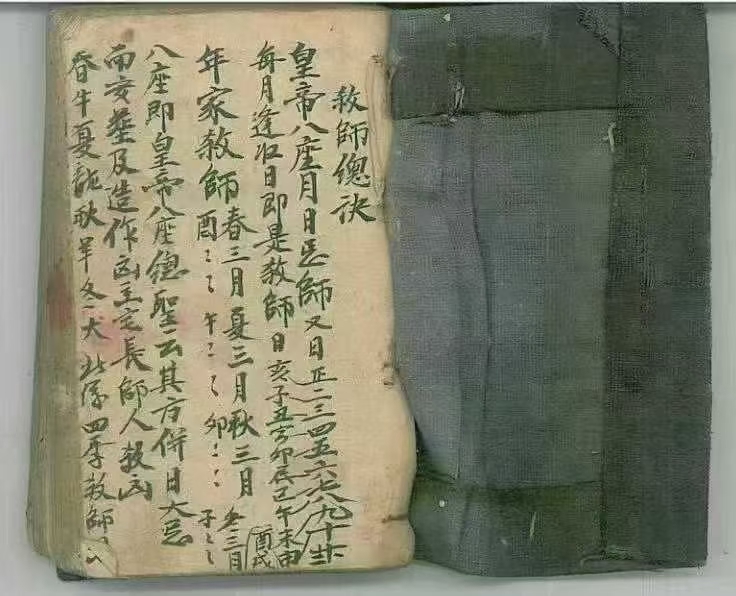 教師總訣
皇帝八座月日忌師又日正二三四五六七八九十
每月逢收日即是教師日亥子丑寅卯辰巳午未申酉戌
年家教師春三月夏三月秋三月冬三月
酉〻〻午〻〻卯〻〻子〻〻
八座即皇帝八座總聖云其方併日大忌
而安葬及造作凶主宅長師人殺凶
春牛夏龍秋羊冬犬此係四季教師